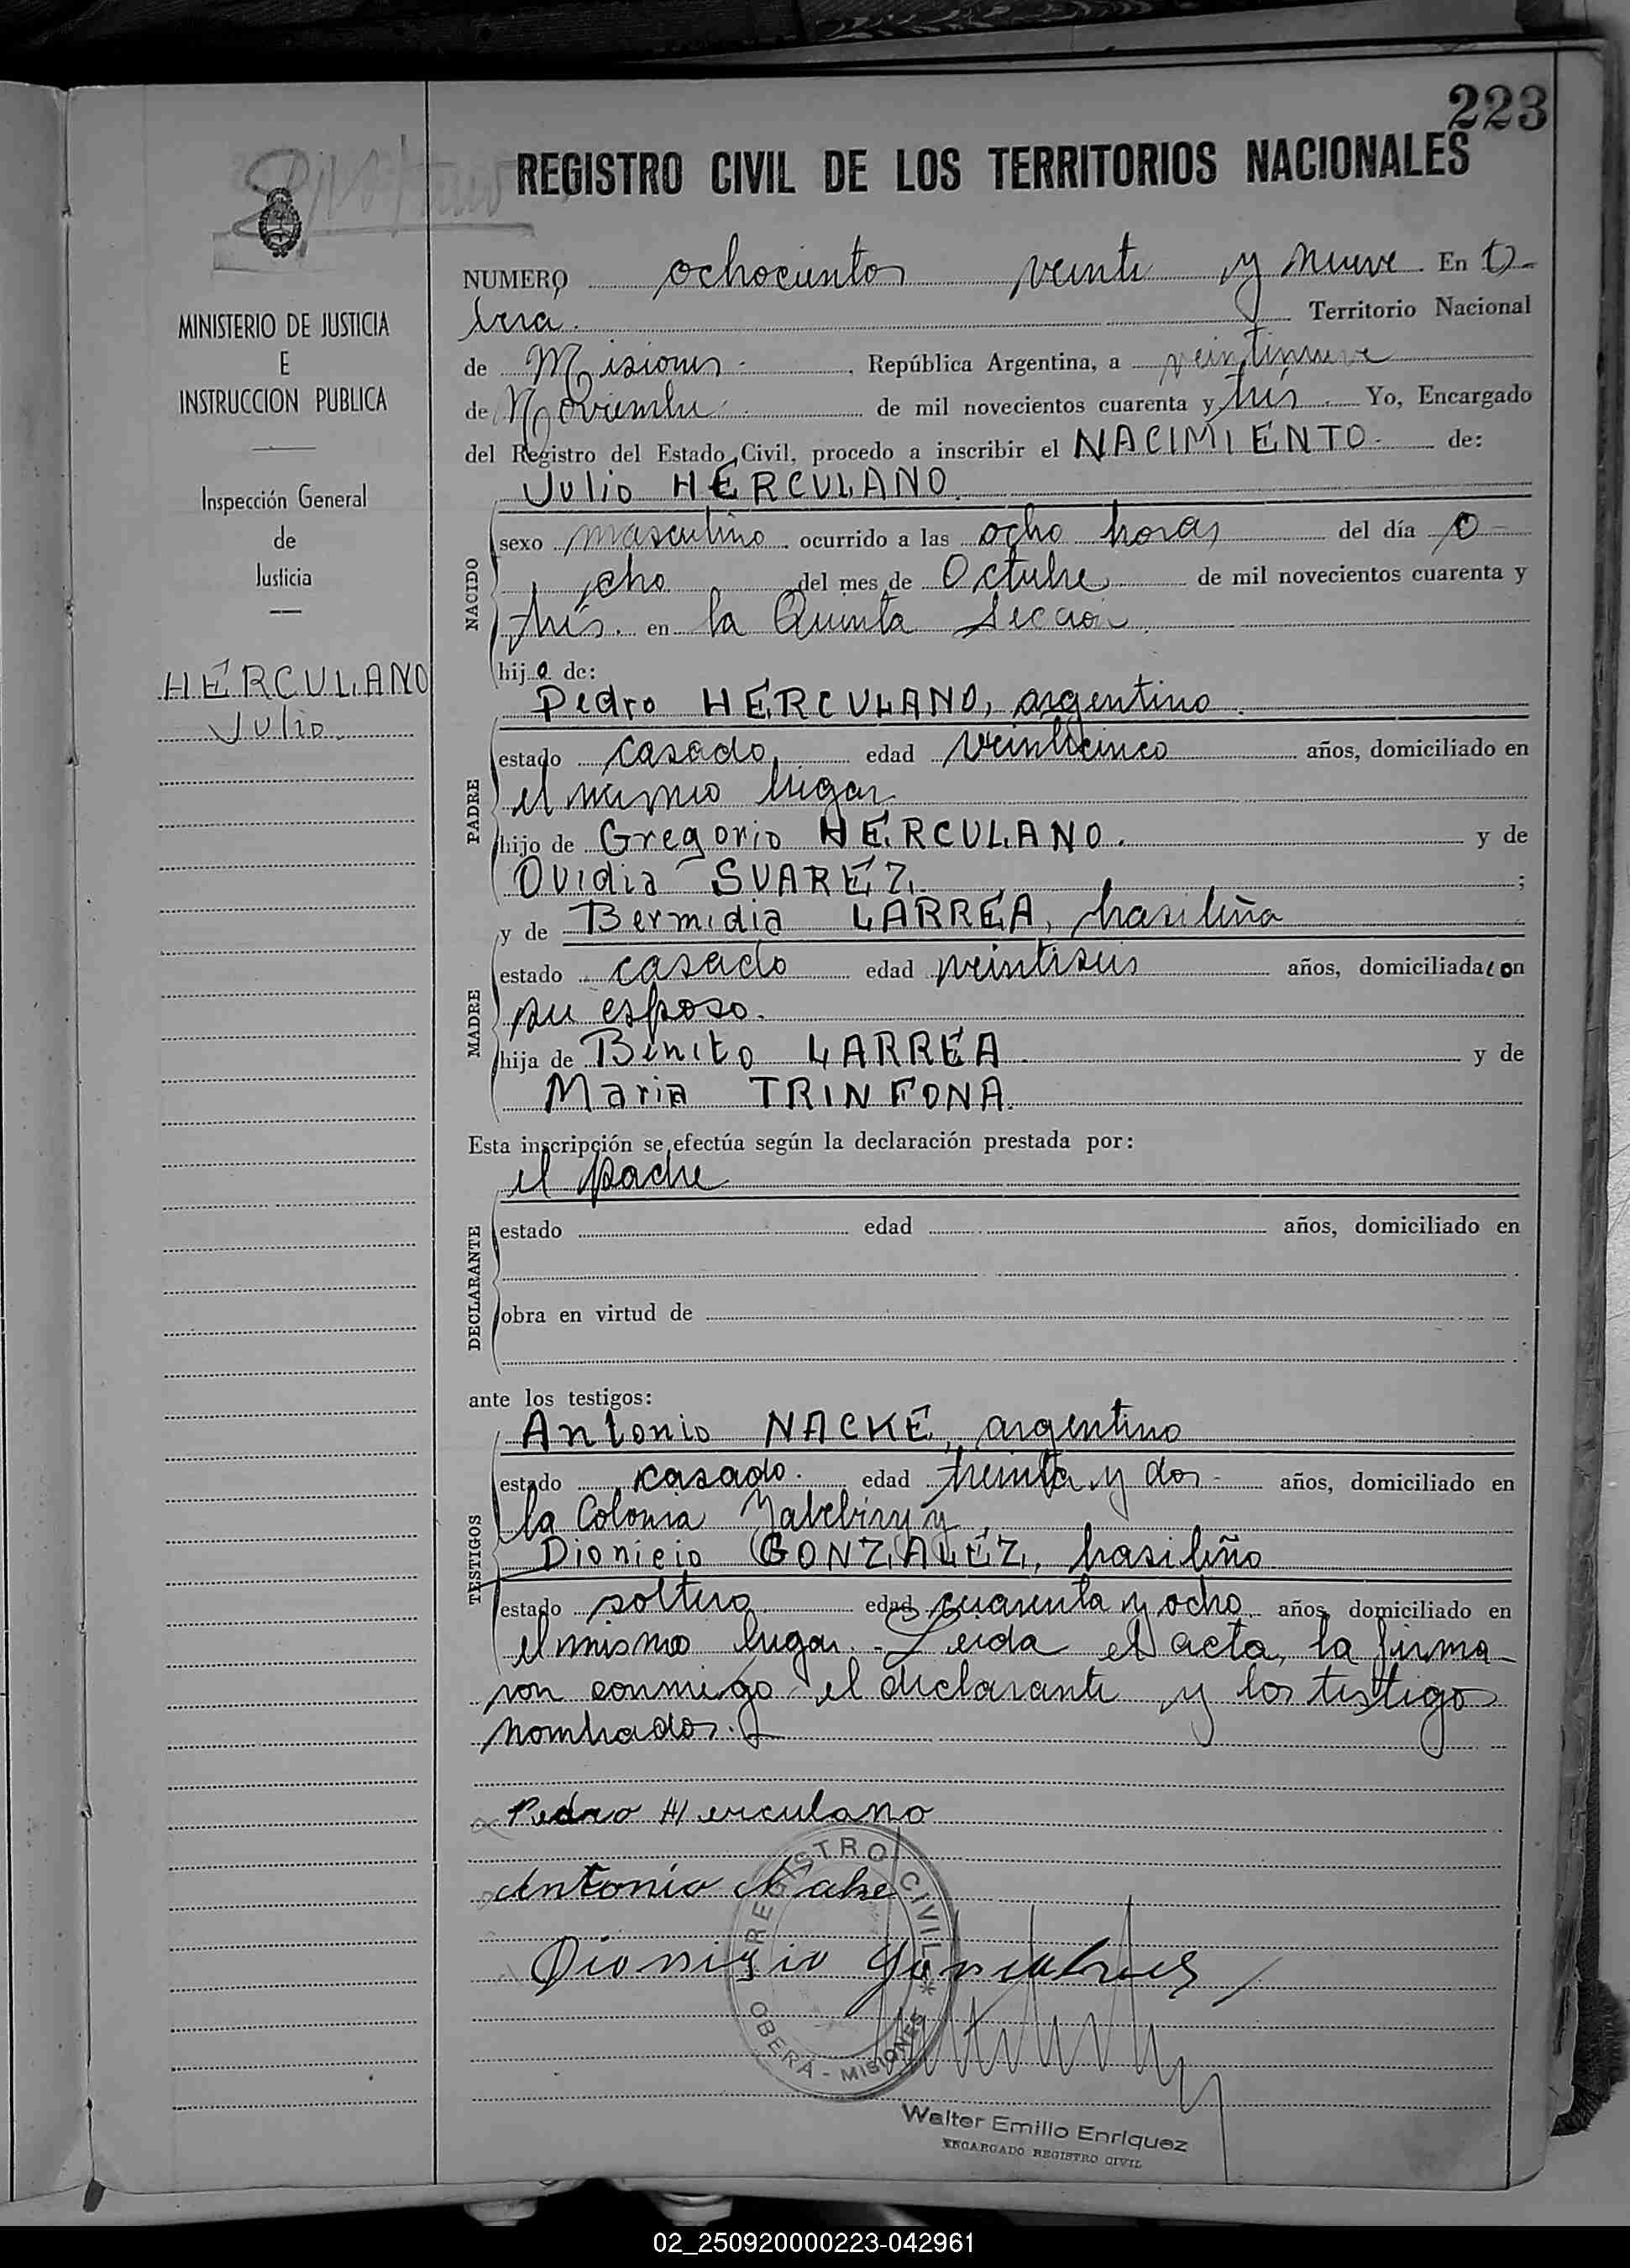 223
REGISTRO CIVIL DE LOS TERRITORIOS NACIONALES
MINISTERIO DE JUSTICIA
E
INSTRUCCION PUBLICA
Inspección General
de
Justicia
HERCULANO
Julio.
NUMERO ochocientos veinte y nueve En O-
bera. Territorio Nacional
de Misiones. República Argentina, a veintinueve
de Noviembre de mil novecientos cuarenta y tres. Yo, Encargado
del Registro del Estado Civil, procedo a inscribir el NACIMIENTO de:
Julio HERCULANO.
NACIDO
sexo masculino ocurrido a las ocho horas del día o-
cho del mes de Octubre de mil novecientos cuarenta y
tres. en la Quinta Seccion.
hijo de:
Pedro HERCULANO, argentino.
PADRE
estado casado, edad veinticinco años, domiciliado en
el mismo lugar
hijo de Gregorio HERCULANO. y de
Ovidia SUAREZ. ;
y de Bermidia LARREA, brasileña
MADRE
estado casado edad veintiseis años, domiciliada con
su esposo.
hija de Benito LARREA. y de
Maria TRINFONA.
Esta inscripción se efectúa según la declaración prestada por:
el padre
DECLARANTE
estado edad años, domiciliado en
obra en virtud de
ante los testigos:
Antonio NACKE, argentino
TESTIGOS
estado casado. edad treinta y dos años, domiciliado en
la Colonia Yabebiry y
Dionicio GONZALEZ, brasileño
estado soltero edad cuarenta y ocho años, domiciliado en
el mismo lugar. - Leida el acta, la firma-
ron conmigo el declarante y los testigos
nombrados.
Pedro Herculano
Antonio Nake
Dionizio
REGISTRO CIVIL * OBERÁ - MISIONES
Walter Emilio Enriquez
ENCARGADO REGISTRO CIVIL
02_250920000223-042961